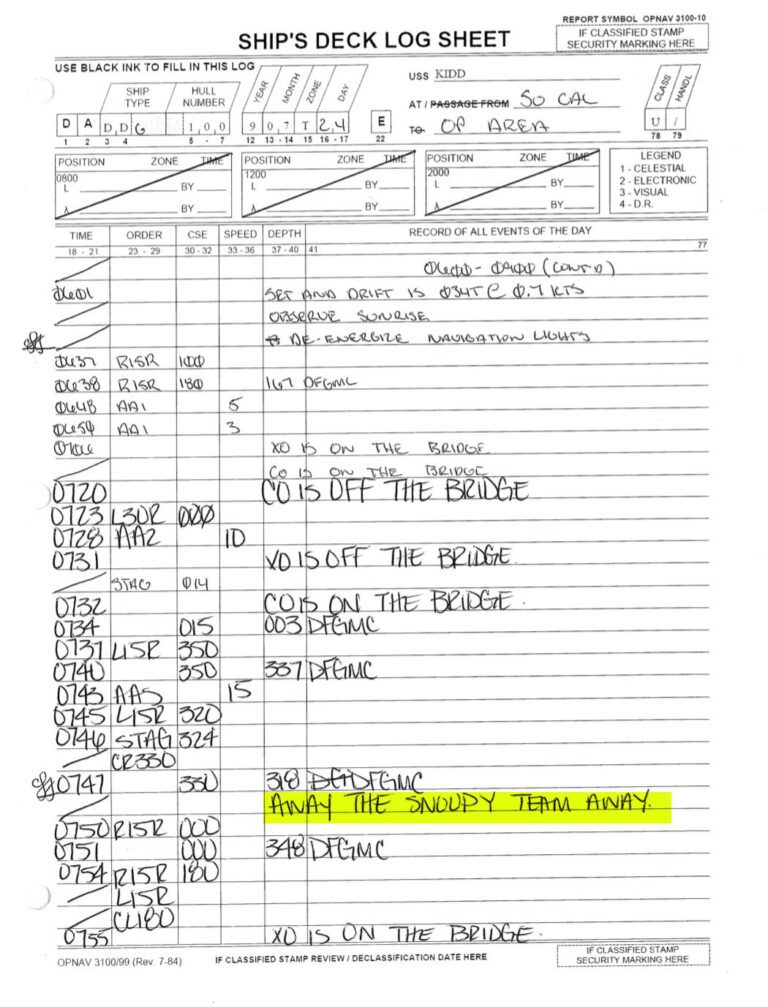 REPORT SYMBOL OPNAV 3100-10
IF CLASSIFIED STAMP
SECURITY MARKING HERE
SHIP'S DECK LOG SHEET
USE BLACK INK TO FILL IN THIS LOG
SHIP TYPE HULL NUMBER YEAR MONTH ZONE DAY
USS KIDD
AT / PASSAGE FROM SO CAL
TO OP AREA
CLASS HANDL
D A D D G 1 0 0 9 0 7 T 2 4 E U /
1 2 3 4 5 - 7 12 13 - 14 15 16 - 17 22 78 79
POSITION ZONE TIME POSITION ZONE TIME POSITION ZONE TIME
0800 1200 2000
L BY L BY L BY
λ BY BY BY
LEGEND
1 - CELESTIAL
2 - ELECTRONIC
3 - VISUAL
4 - D.R.
TIME ORDER CSE SPEED DEPTH RECORD OF ALL EVENTS OF THE DAY
18 - 21 23 - 29 30 - 32 33 - 36 37 - 40 41 77
0600 - 0900 (CONT'D)
0601 SET AND DRIFT IS 034T @ 0.7 KTS
OBSERVE SUNRISE
DE-ENERGIZE NAVIGATION LIGHTS
0637 R15R 100
0638 R15R 180 167 DFGMC
0648 AA1 5
AA1 3
XO IS ON THE BRIDGE
CO IS ON THE BRIDGE
0720 CO IS OFF THE BRIDGE
0723 L30R 000
0728 AA2 10
0731 XO IS OFF THE BRIDGE.
STAG 014
0732 CO IS ON THE BRIDGE.
0734 015 003 DFGMC
0737 L15R 350
0740 350 337 DFGMC
0743 AAS 15
0745 L15R 320
0746 STAG 324
CR330
0747 330 318 DFGMC
AWAY THE SNOOPY TEAM AWAY.
0750 R15R 000
0751 000 348 DFGMC
0754 R15R 180
L15R
CL180
0755 XO IS ON THE BRIDGE.
OPNAV 3100/99 (Rev. 7-84) IF CLASSIFIED STAMP REVIEW / DECLASSIFICATION DATE HERE
IF CLASSIFIED STAMP
SECURITY MARKING HERE